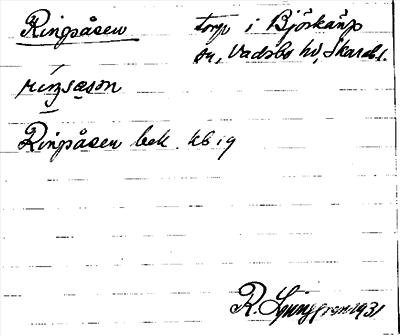 Ringåsen torp i Björkäng
sn, Vadsbo hd, Skarab. l.
riŋsåsən
Ringåsen bek. kb 19
R. Ljunggren 1931